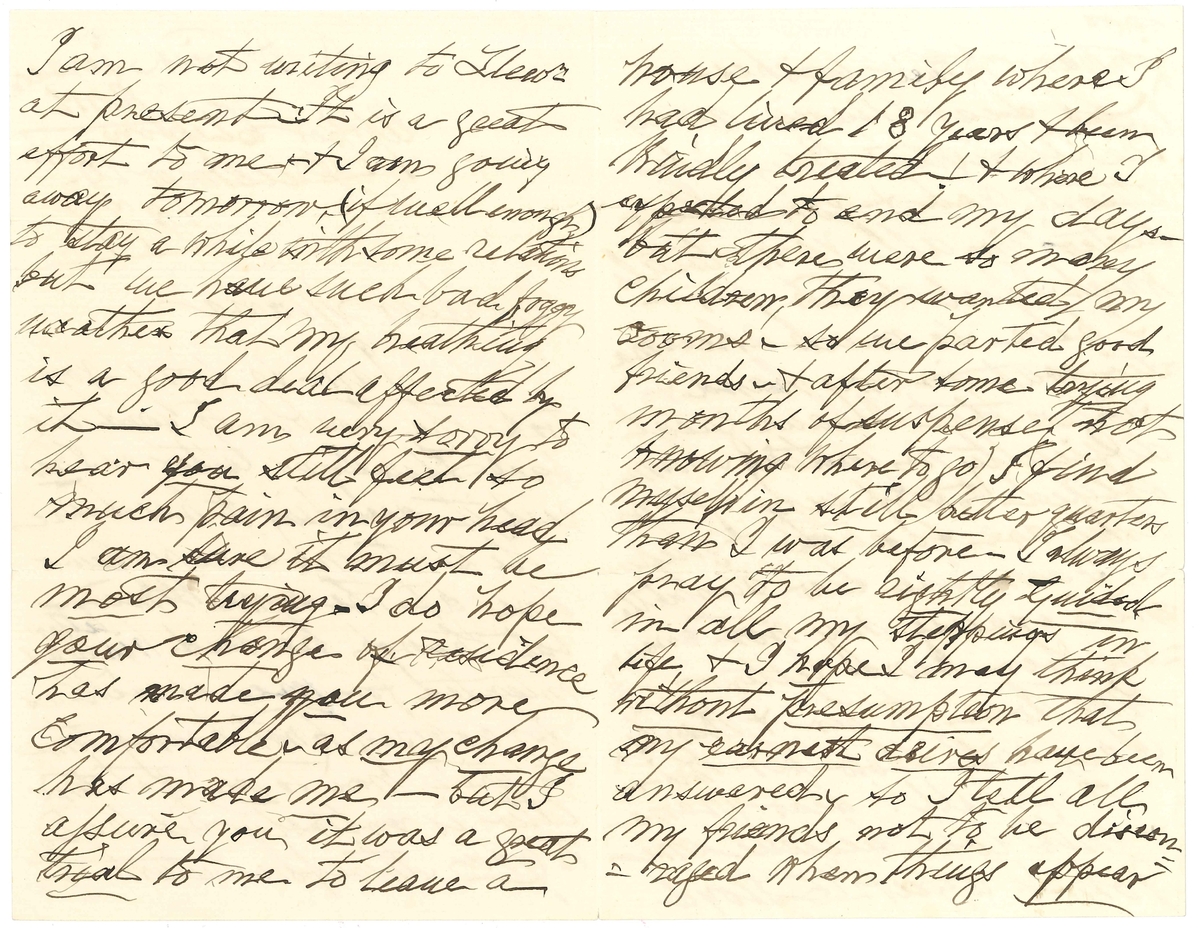 I am not writing to
at present. It is a great
effort to me & I am going
away tomorrow, (if well enough)
to stay a while with some relations
but we have such bad foggy
weather that my breathing
is a good deal affected by
it — I am very sorry to
hear you still feel so
much pain in your head
I am sure it must be
most trying. I do hope
your change of residence
has made you more
comfortable, as my change
has made me — but I
assure you it was a great
trial to me to leave a
house & family where I
had lived 18 years & been
kindly treated & where I
expected to end my days
but there were so many
children, they wanted my
rooms - so we parted good
friends - & after some trying
months of suspense, (not
knowing where to go) I find
myself in still better quarters
than I was before - I always
pray to be rightly guided
in all my steppings in
life, & I hope I may think
without presumption that
my earnest desires have been
answered, so I tell all
my friends not to be discou
= raged when things appear